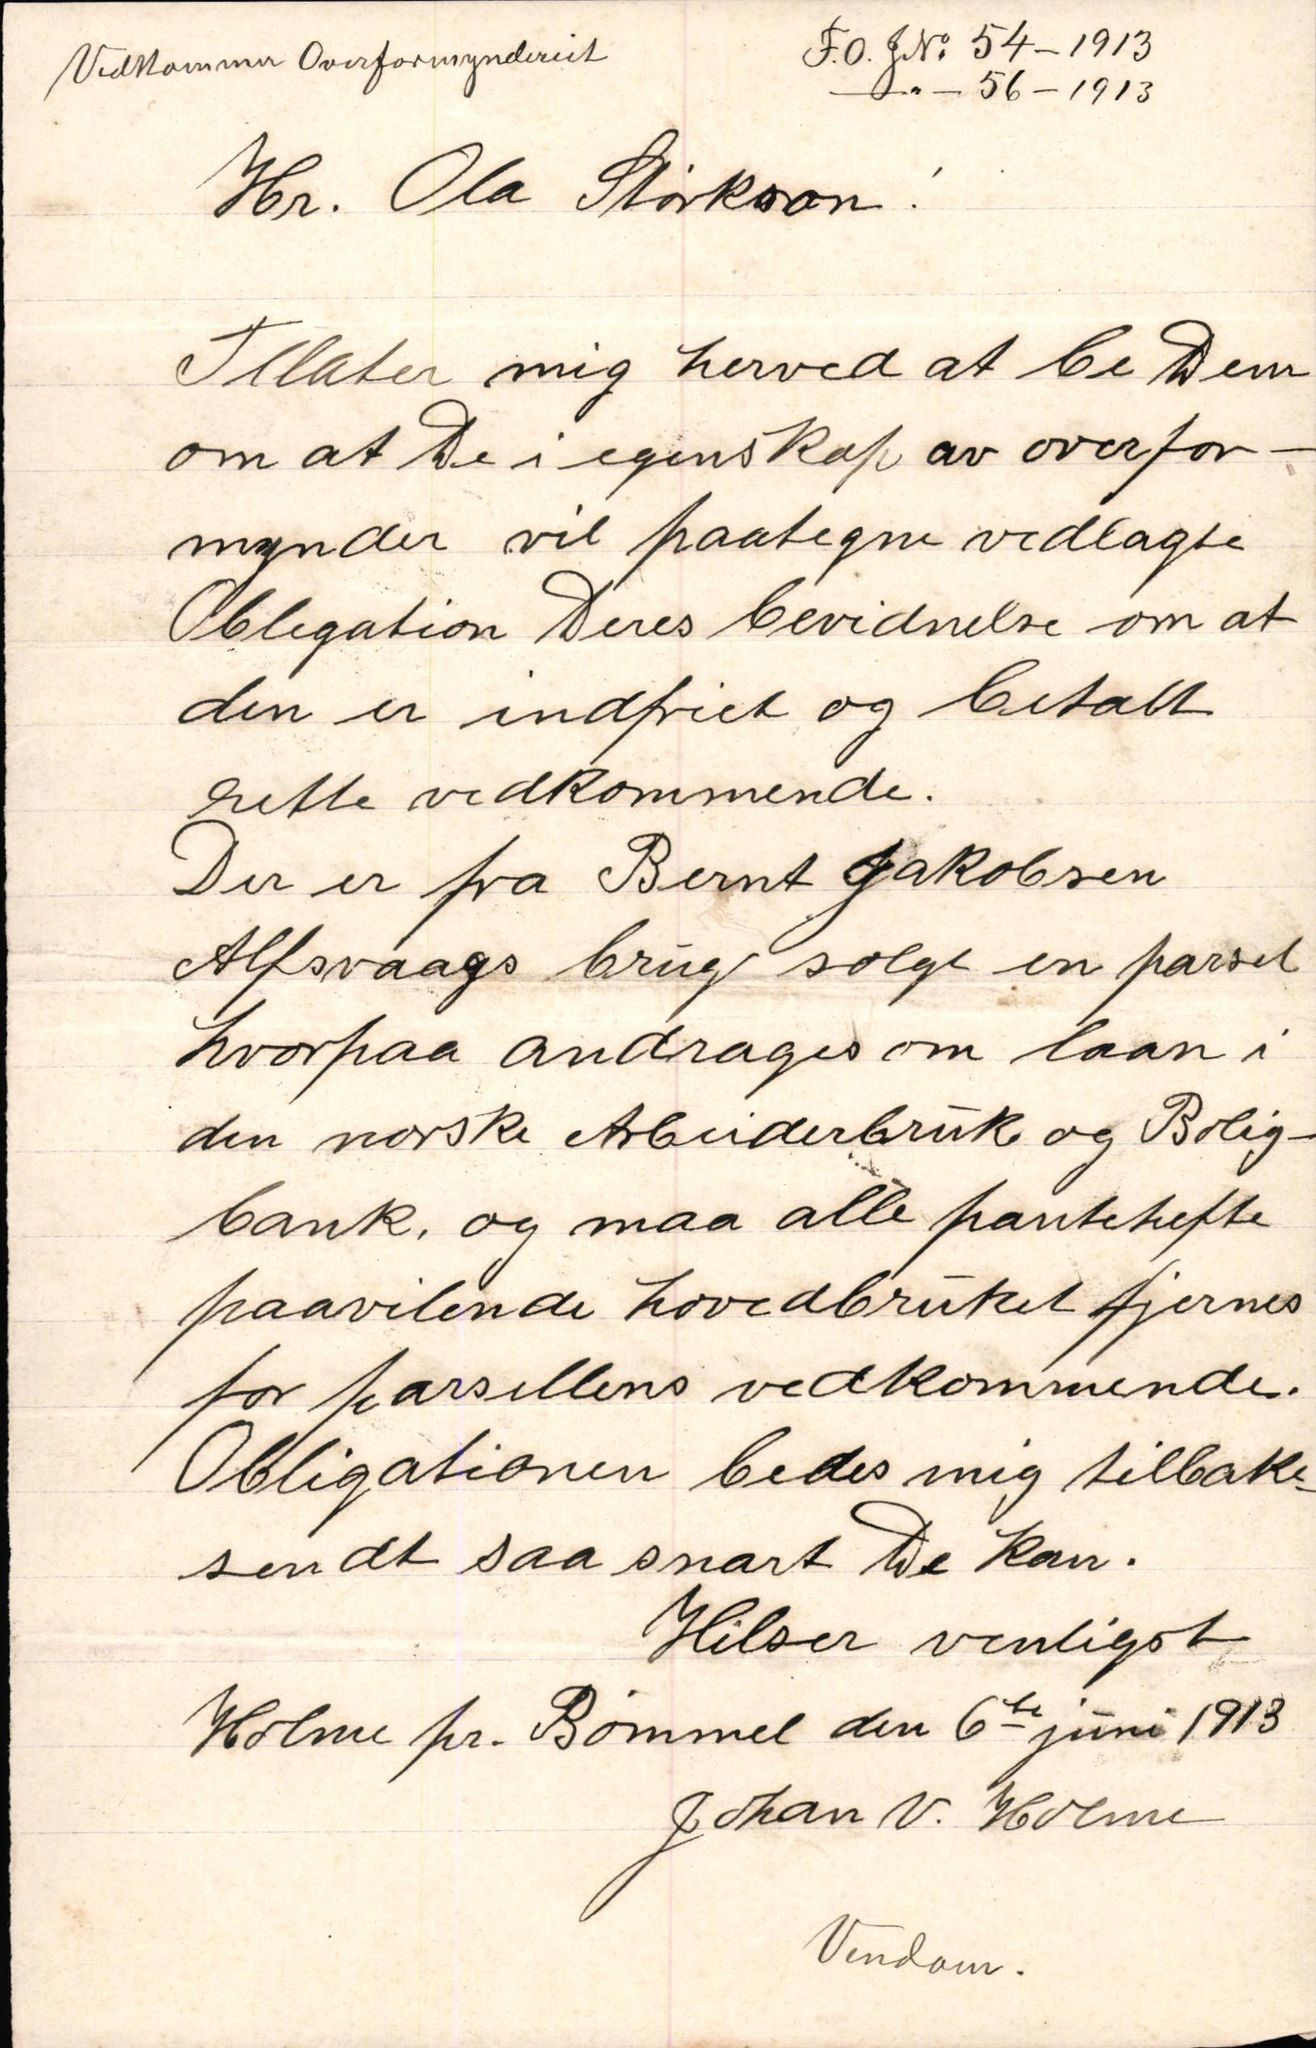 Vedkommer Overformynderiet
F.O. J.No. 54-1913
—„— 56-1913
Hr. Ola Størkson!
Tillater mig herved at be Dem
om at De i egenskap av overfor-
mynder vil paategne vedlagte
Oblegation Deres bevidnelse om at
den er indfriet og betalt
rette vedkommende.
Der er fra Bernt Jakobsen
Alfsvaags brug solgt en parsel
hvorpaa andrages om laan i
den norske Arbeiderbruk og Bolig-
bank, og maa alle pantehefte
paavilende hovedbruket fjernes
for parsellens vedkommende.
Obligationen bedes mig tilbake-
sendt saa snart De kan.
Hilser venligst
Holme pr. Bømmel den 6te juni 1913
Johan V. Holme
Vendom.